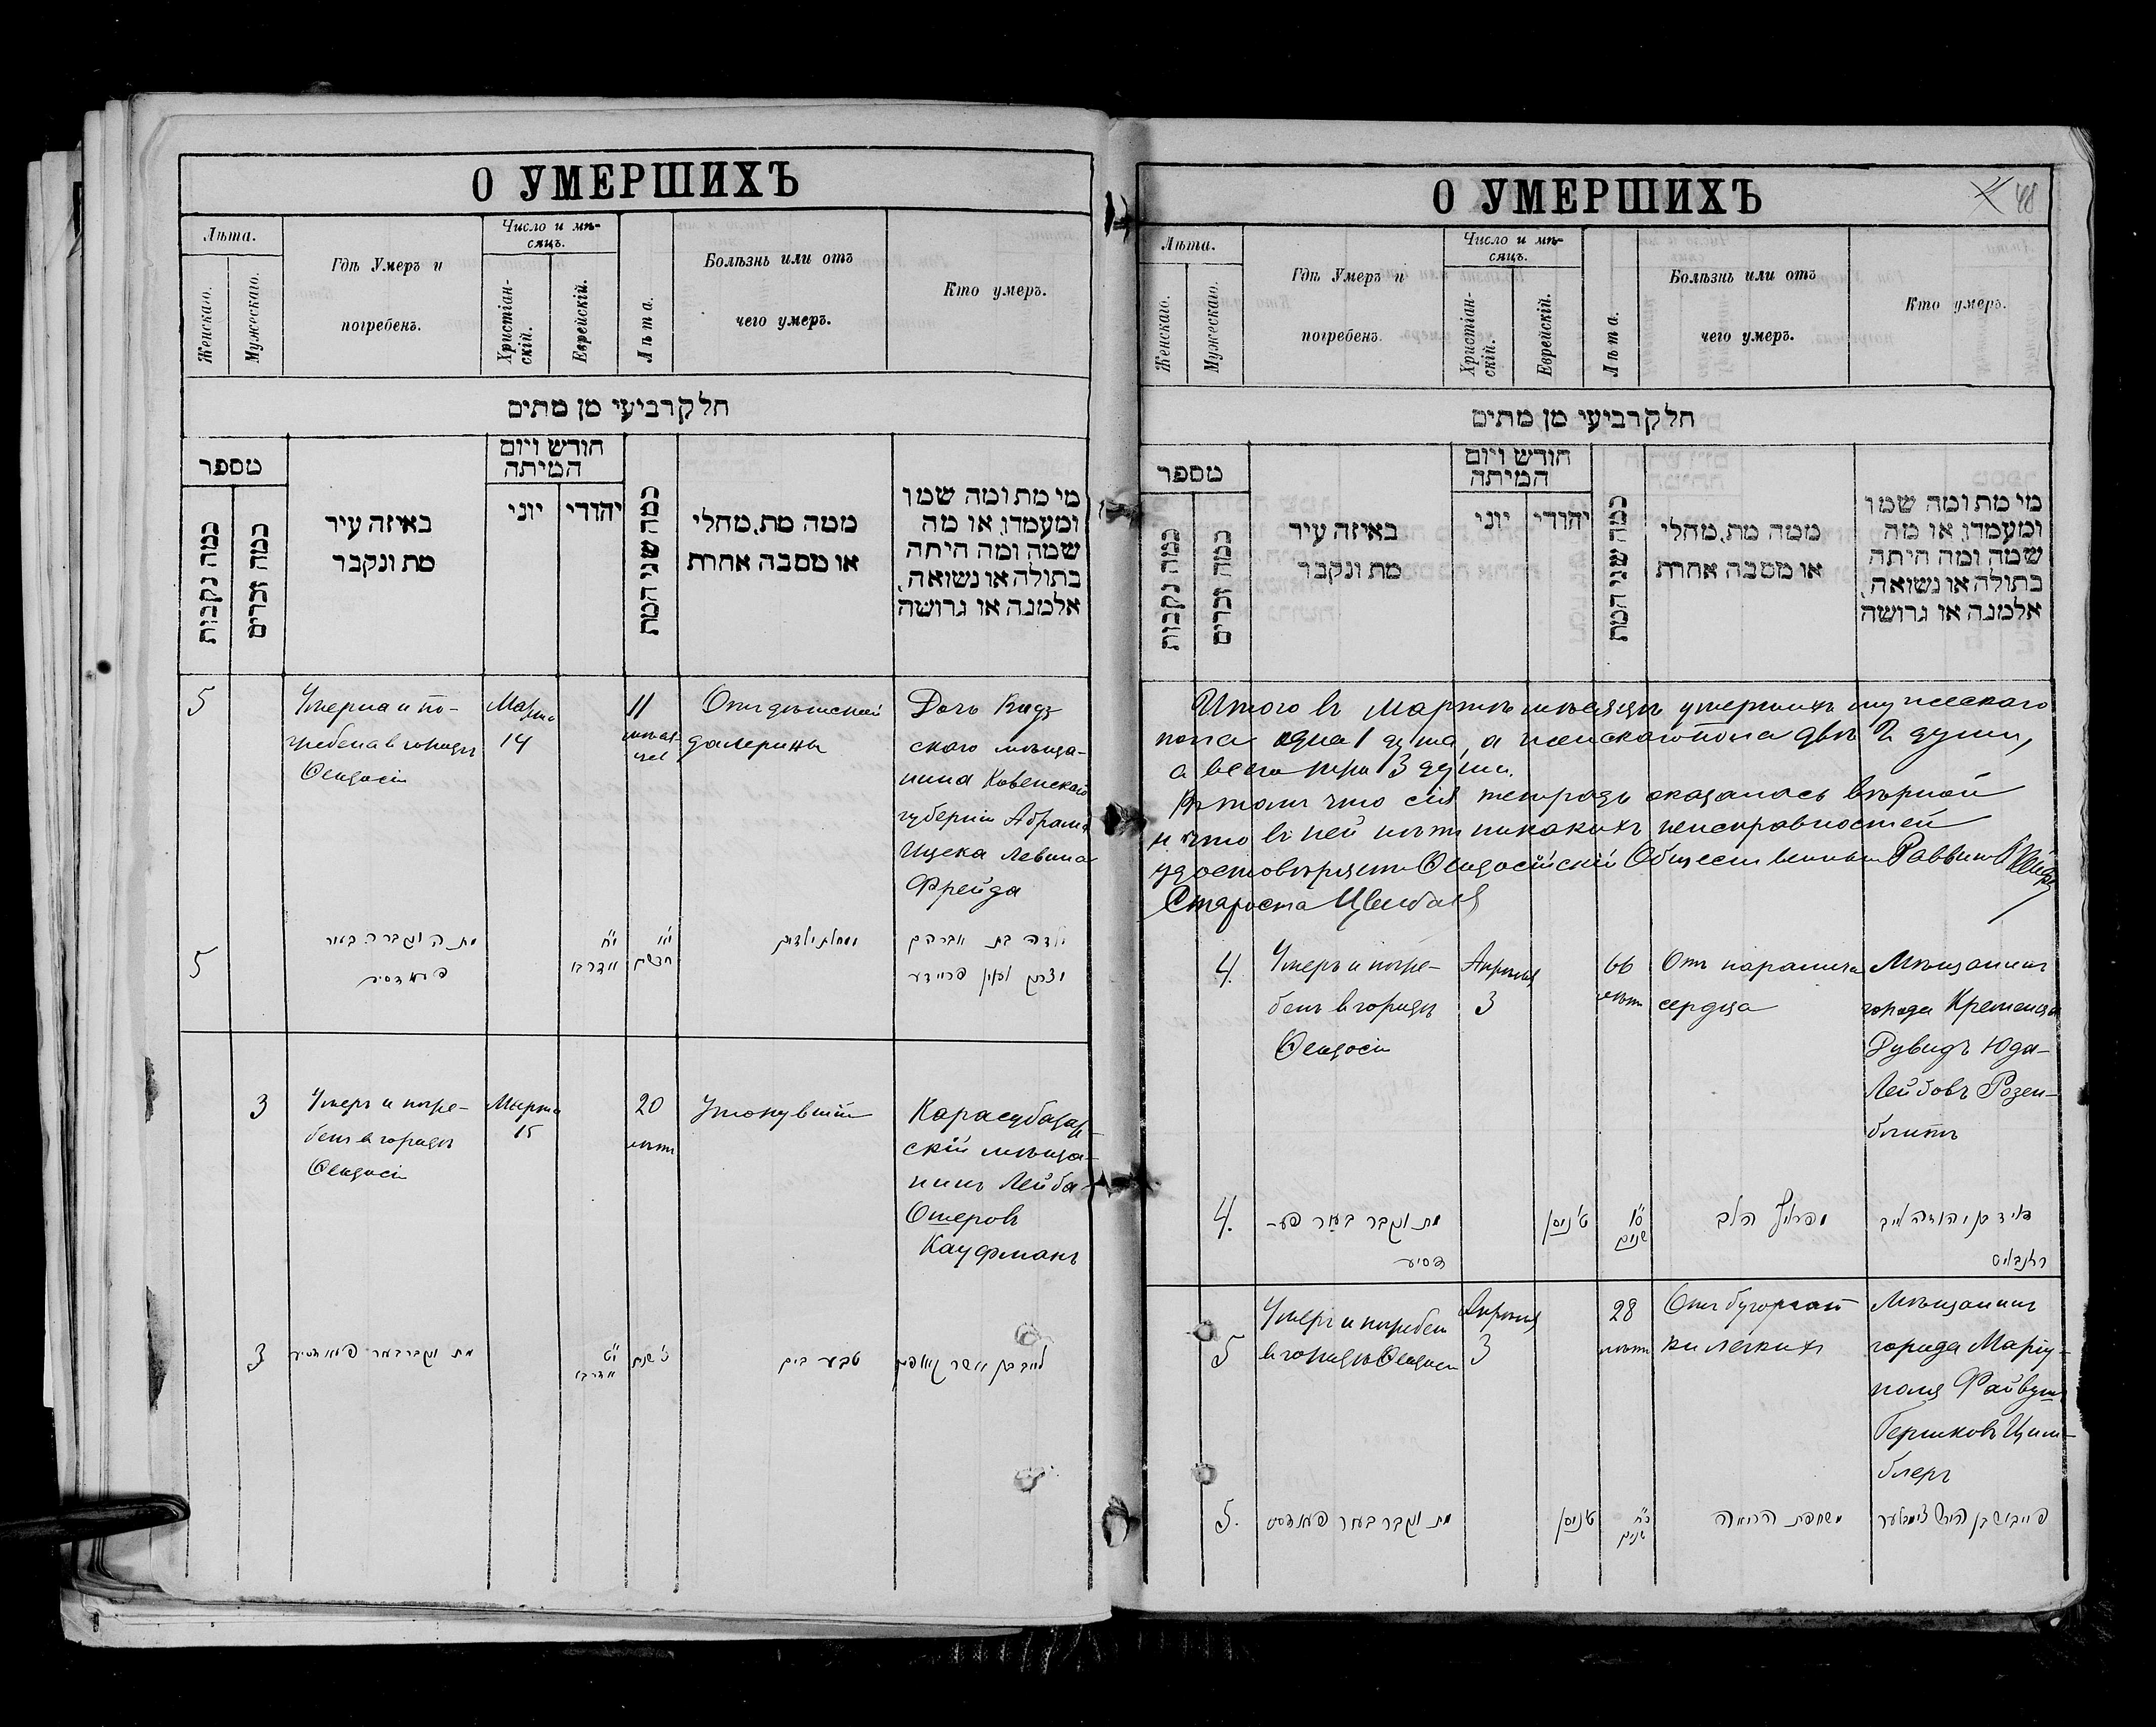 О УМЕРШИХЪ
Лѣта.
Женскаго.
Мужескаго.
Гдѣ Умеръ и
погребенъ.
Число и мѣ-
сяцъ.
Христіан-
скій.
Еврейскій.
Лѣта.
Болѣзнь или отъ
чего умеръ.
Кто умеръ.
חלק רביעי מן מתים
מספר
כמה נקבות
כמה זכרים
באיזה עיר
מת ונקבר
חודש ויום
המיתה
יוני
יהודי
כמה שני המת
ממה מת, מחלי
או מסבה אחרת
מי מת ומה שמו
ומעמדו, או מה
שמה ומה היתה
בתולה או נשואה,
אלמנה או גרושה
5
Умерла и по-
гребена в городѣ
Ѳеодосіи
Марта
14
11
мѣся-
цев
От дѣтской
Дочь Видз
скаго мѣща-
нина Ковенской
губерніи Абрама
Ицека Левина
Фрейда
5
י״ח
אדר ב׳
י״א
ילדה בת אברהם
יצחק לווין פריידע
3
Умеръ и погре-
бенъ в городѣ
Ѳеодосіи
Марта
15
20
лѣтъ
Утонувшій
Карасубазар-
скій мѣща-
нинъ Лейба-
Ошеровъ
Кауфманъ
3
מת ונקבר בעיר
י״ט
אדר ב׳
כ׳ שנה
טבע בים
לייב בן אשר קויפמן
О УМЕРШИХЪ
48
Лѣта.
Женскаго.
Мужескаго.
Гдѣ Умеръ и
погребенъ.
Число и мѣ-
сяцъ.
Христіан-
скій.
Еврейскій.
Лѣта.
Болѣзнь или отъ
чего умеръ.
Кто умеръ.
חלק רביעי מן מתים
מספר
כמה נקבות
כמה זכרים
באיזה עיר
מת ונקבר
חודש ויום
המיתה
יוני
יהודי
כמה שני המת
ממה מת, מחלי
או מסבה אחרת
מי מת ומה שמו
ומעמדו, או מה
שמה ומה היתה
בתולה או נשואה,
אלמנה או גרושה
Итого въ Мартѣ мѣсяцѣ умершихъ мужескаго
пола одна 1 душа, а женскаго пола двѣ 2 души,
а всего три 3 души.
Въ томъ что сія тетрадь оказалась вѣрной
и что въ ней нѣтъ никакихъ неисправностей
удостовѣряетъ Ѳеодосійскій Общественный Раввинъ
Староста
4.
Умеръ и погре-
бенъ в городѣ
Ѳеодосіи
Апрѣля
3
66
лѣтъ
Отъ паралича
сердца
Мѣщанинъ
города Кременца
Дувидъ Юда-
Лейбовъ Розен-
блитъ
4.
מת ונקבר בעיר פע-
דסיע
ט׳ ניסן
ס״ו
שנים
הלב
דוד בן יהודה לייב
5
Умеръ и погребен
в городѣ Ѳеодосіи
Апрѣля
3
28
лѣтъ
Отъ бугорчат
ки легкихъ
Мѣщанинъ
города Маріу-
поля Файвуш
Гершковъ Цим-
блеръ
5.
מת ונקבר בעיר
ט׳ ניסן
כ״ח
שנים
שחפת הריאה
פייבוש בן הירש צימבלער